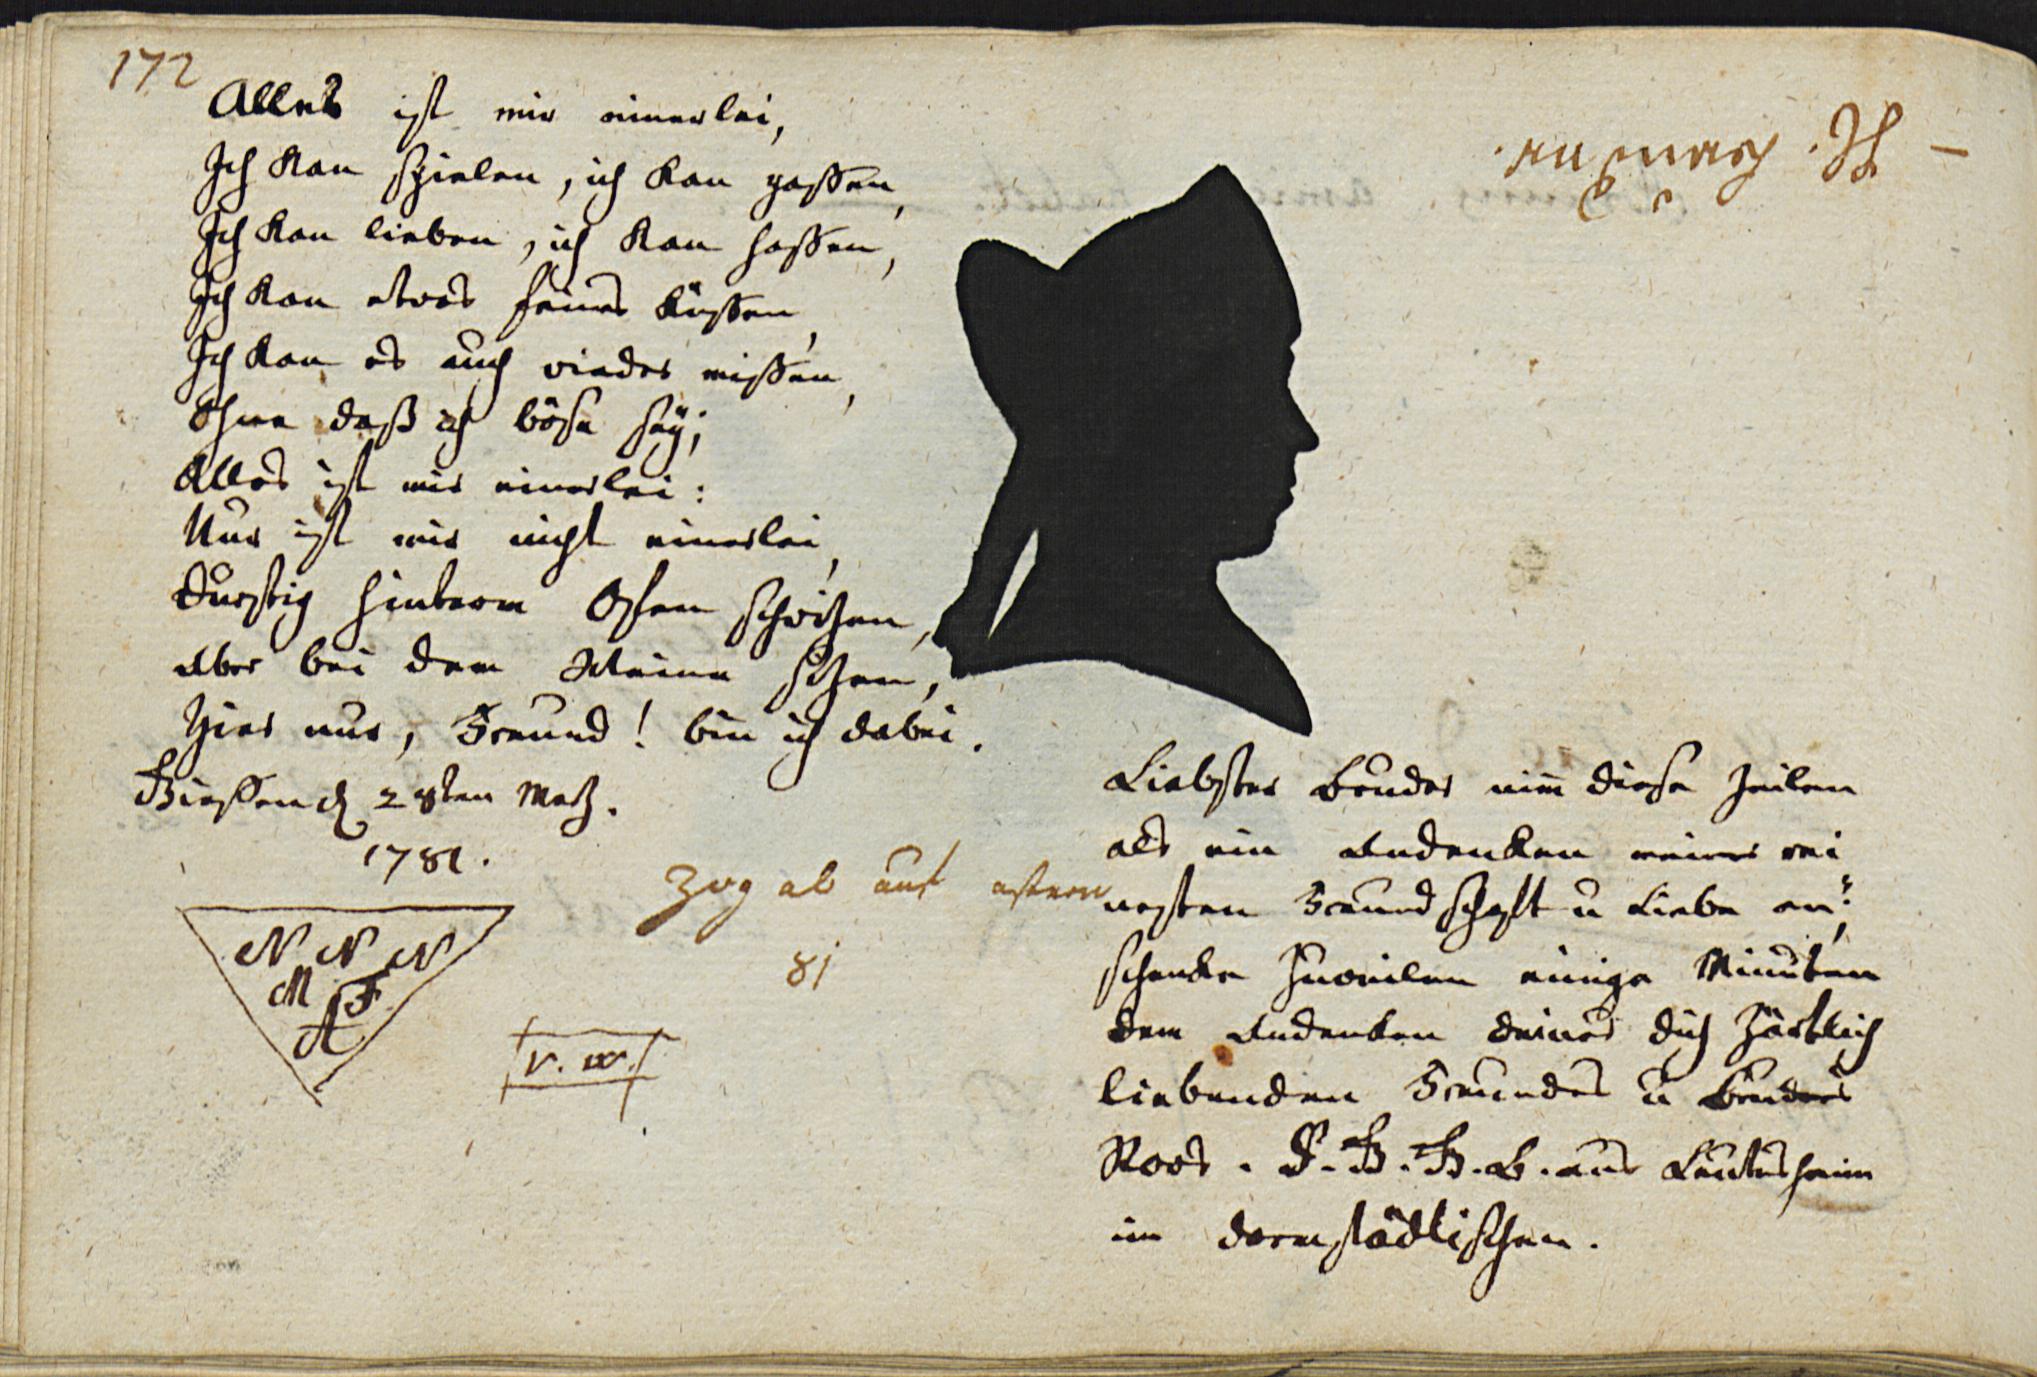 172
Alles ist mir einerlei,
Ich kan spielen, ich kan passen,
Ich kan lieben, ich kan hassen,
Ich kan etwas feines küssen,
Ich kan es auch wieder missen,
Ohne daß ich böse seÿ;
Alles ist mir einerlei:
Nur ist mir nicht einerlei,
Durstig hinterm Ofen schwizen,
Aber bei dem Weine sizen,
Hier nur, Freund! bin ich dabei.
Giessen d 28ten Merz.
1781.
N N N
M F
A
V. W.
zog ab auf ostern
81
Liebster Bruder nim̅ diese Zeilen
als ein Andenken meiner rei
nesten Freundschaft u Liebe an;
schenke zuweilen einige Minuten
dem Andenken deines dich zärtlich
liebenden Freundes u Bruders
Roos. d. G. G. B. aus Leutersheim
im darmstädtischen.